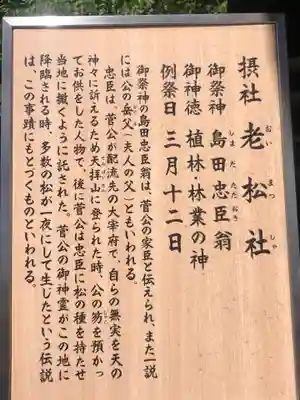 摂社 老松社
おい まつ しゃ
御祭神 島田忠臣翁
しま だ ただ おみ
御神徳 植林・林業の神
例祭日 三月十二日
御祭神の島田忠臣翁は、菅公の家臣と伝えられ、また一説
には公の岳父（夫人の父）ともいわれる。
忠臣は、菅公が配流先の大宰府で、自らの無実を天の
神々に訴えるため天拝山に登られた時、公の笏を預かっ
てお供をした人物で、後に菅公は忠臣に松の種を持たせ
当地に撒くように託された。菅公の御神霊がこの地に
降臨される時、多数の松が一夜にして生じたという伝説
は、この事蹟にもとづくものといわれる。